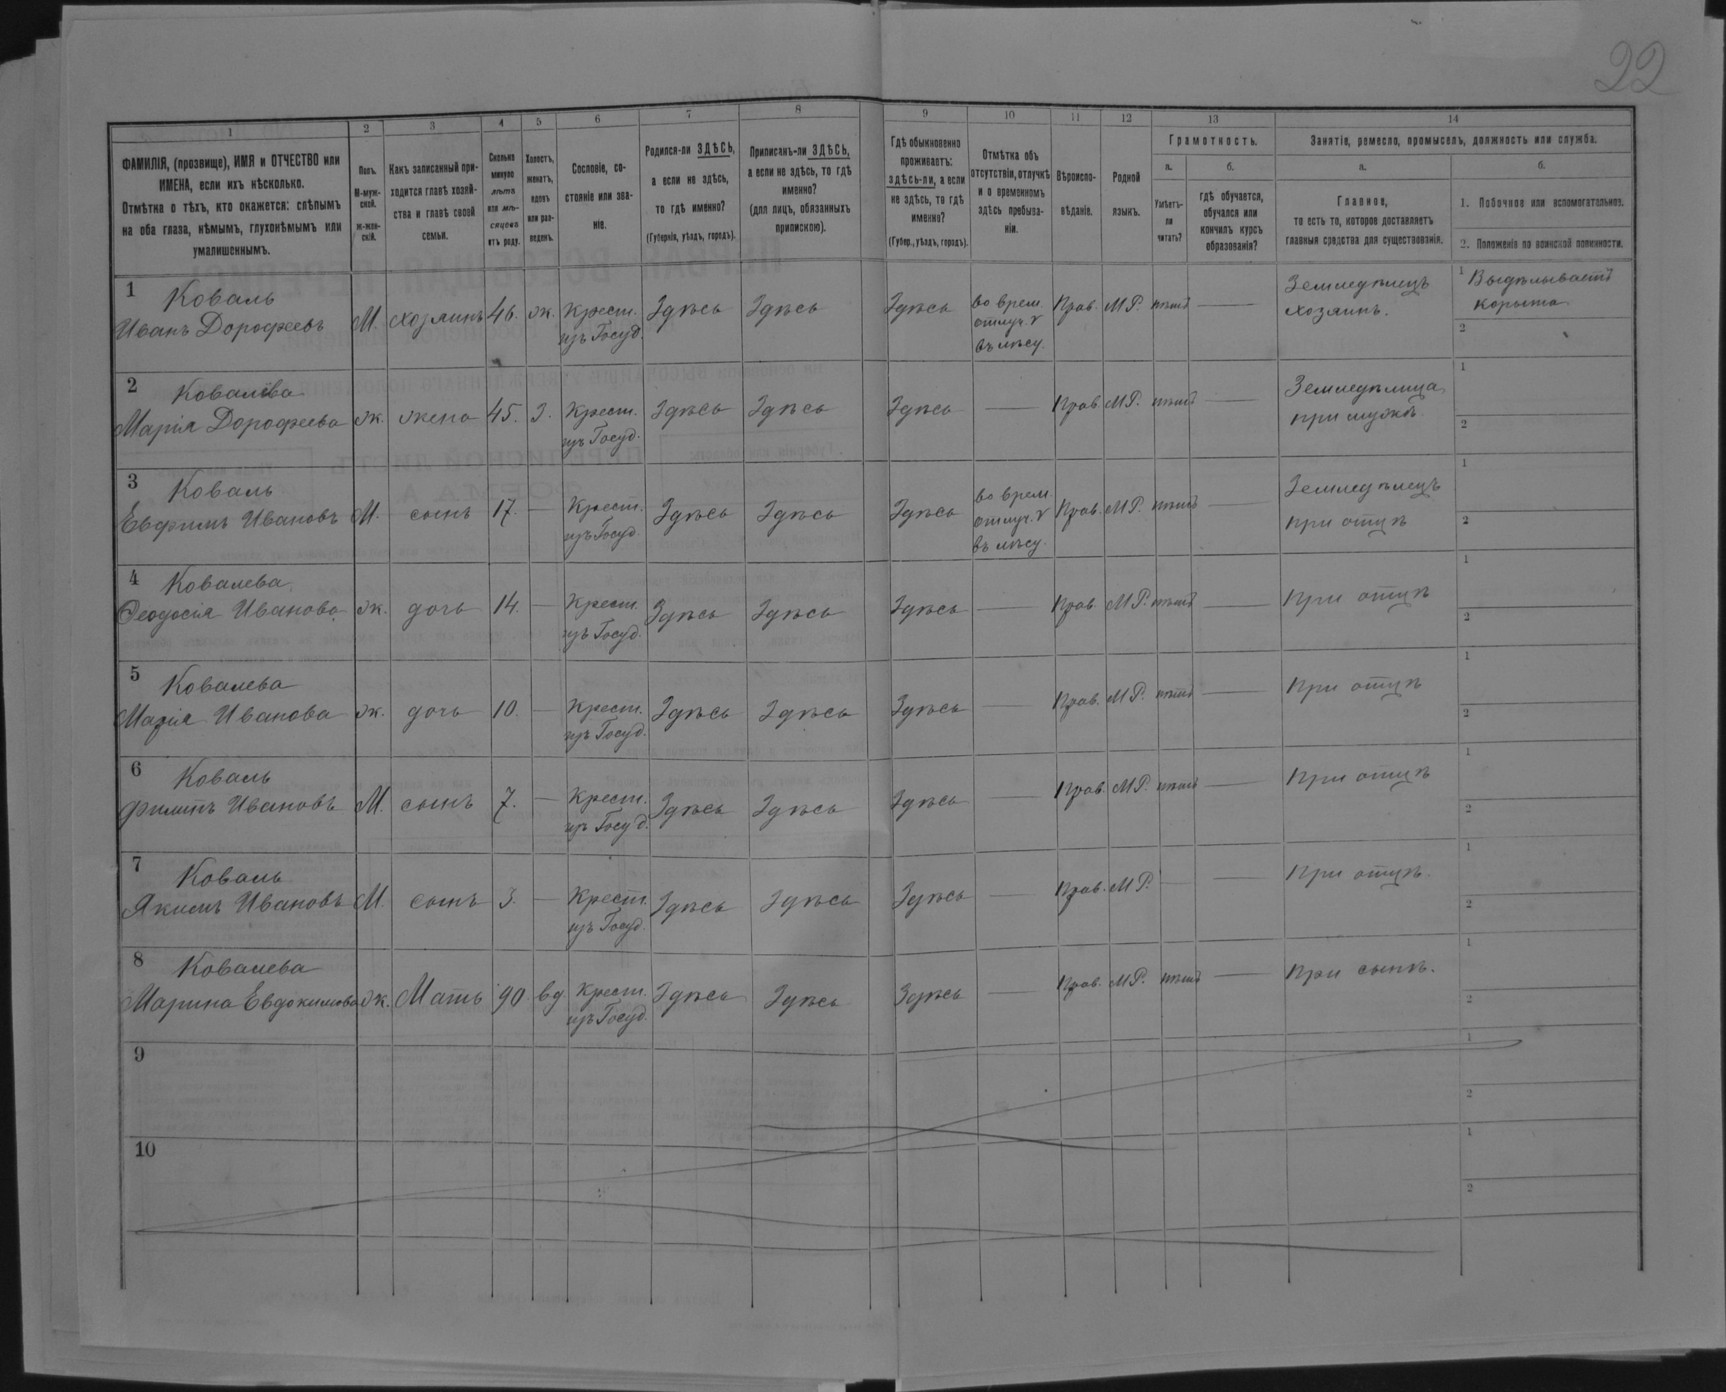 22
1 2 3 4 5 6 7 8 9 10 11 12 13 14
ФАМИЛІЯ, (прозвище), ИМЯ и ОТЧЕСТВО или
ИМЕНА, если ихъ нѣсколько.
Отмѣтка о тѣхъ, кто окажется: слѣпымъ
на оба глаза, нѣмымъ, глухонѣмымъ или
умалишеннымъ.
Полъ.
М-муж-
ской.
ж-жен-
скій.
Какъ записанный при-
ходится главѣ хозяй-
ства и главѣ своей
семьи.
Сколько
минуло
лѣтъ
или мѣ-
сяцевъ
отъ роду.
Холостъ,
женатъ,
вдовъ
или раз-
веденъ.
Сословіе, со-
стояніе или зва-
ніе.
Родился-ли ЗДѢСЬ,
а если не здѣсь,
то гдѣ именно?
(Губернія, уѣздъ, городъ).
Приписанъ-ли ЗДѢСЬ,
а если не здѣсь, то гдѣ
именно?
(для лицъ, обязанныхъ
припискою).
Гдѣ обыкновенно
проживаетъ:
здѣсь-ли, а если
не здѣсь, то гдѣ
именно?
(Губер., уѣздъ, городъ).
Отмѣтка объ
отсутствіи, отлучкѣ
и о временномъ
здѣсь пребыва-
ніи.
Вѣроиспо-
вѣданіе.
Родной
языкъ.
Грамотность.
а.
Умѣетъ-
ли
читать?
б.
гдѣ обучается,
обучался или
кончилъ курсъ
образованія?
Занятіе, ремесло, промыселъ, должность или служба.
а.
Главное,
то есть то, которое доставляетъ
главныя средства для существованія.
б.
1. Побочное или вспомогательное.
2. Положеніе по воинской повинности.
1 Коваль
Иванъ Дорофеевъ М. хозяинъ 46. ж. Крест. изъ Госуд. Здѣсь Здѣсь Здѣсь во врем. отлуч. въ лѣсу. Прав. М.Р. нѣтъ — Земледѣлецъ хозяинъ. 1 Выдѣлываетъ корыта 2
2 Ковалева
Марія Дорофеева ж. жена 45. з. Крест. изъ Госуд. Здѣсь Здѣсь Здѣсь — Прав. М.Р. нѣтъ — Земледѣлица при мужѣ. 1 2
3 Коваль
Евфимъ Ивановъ М. сынъ 17. — Крест. изъ Госуд. Здѣсь Здѣсь Здѣсь во врем. отлуч. въ лѣсу. Прав. М.Р. нѣтъ — Земледѣлецъ при отцѣ 1 2
4 Ковалева
Феодосія Иванова ж. дочь 14. — Крест. изъ Госуд. Здѣсь Здѣсь Здѣсь — Прав. М.Р. нѣтъ — При отцѣ 1 2
5 Ковалева
Марія Иванова ж. дочь 10. — Крест. изъ Госуд. Здѣсь Здѣсь Здѣсь — Прав. М.Р. нѣтъ — При отцѣ 1 2
6 Коваль
Филипъ Ивановъ М. сынъ 7. — Крест. изъ Госуд. Здѣсь Здѣсь Здѣсь — Прав. М.Р. нѣтъ — При отцѣ 1 2
7 Коваль
Якимъ Ивановъ М. сынъ 3. — Крест. изъ Госуд. Здѣсь Здѣсь Здѣсь — Прав. М.Р. — — При отцѣ. 1 2
8 Ковалева
Марина Евдокимова ж. Мать 90. вд. Крест. изъ Госуд. Здѣсь Здѣсь Здѣсь — Прав. М.Р. нѣтъ — При сынѣ. 1 2
9 1 2
10 1 2